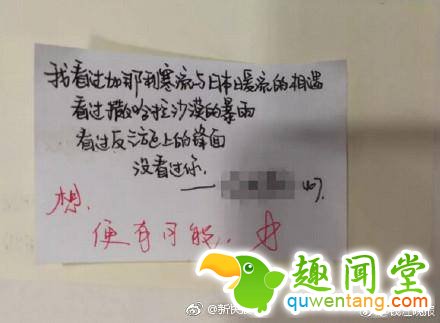 我看过加那利寒流与日本暖流的相遇
看过撒哈拉沙漠的暴雨
看过反气旋上的锋面
没看过你.
想.
便有可能.
趣闻堂
quwentang.com